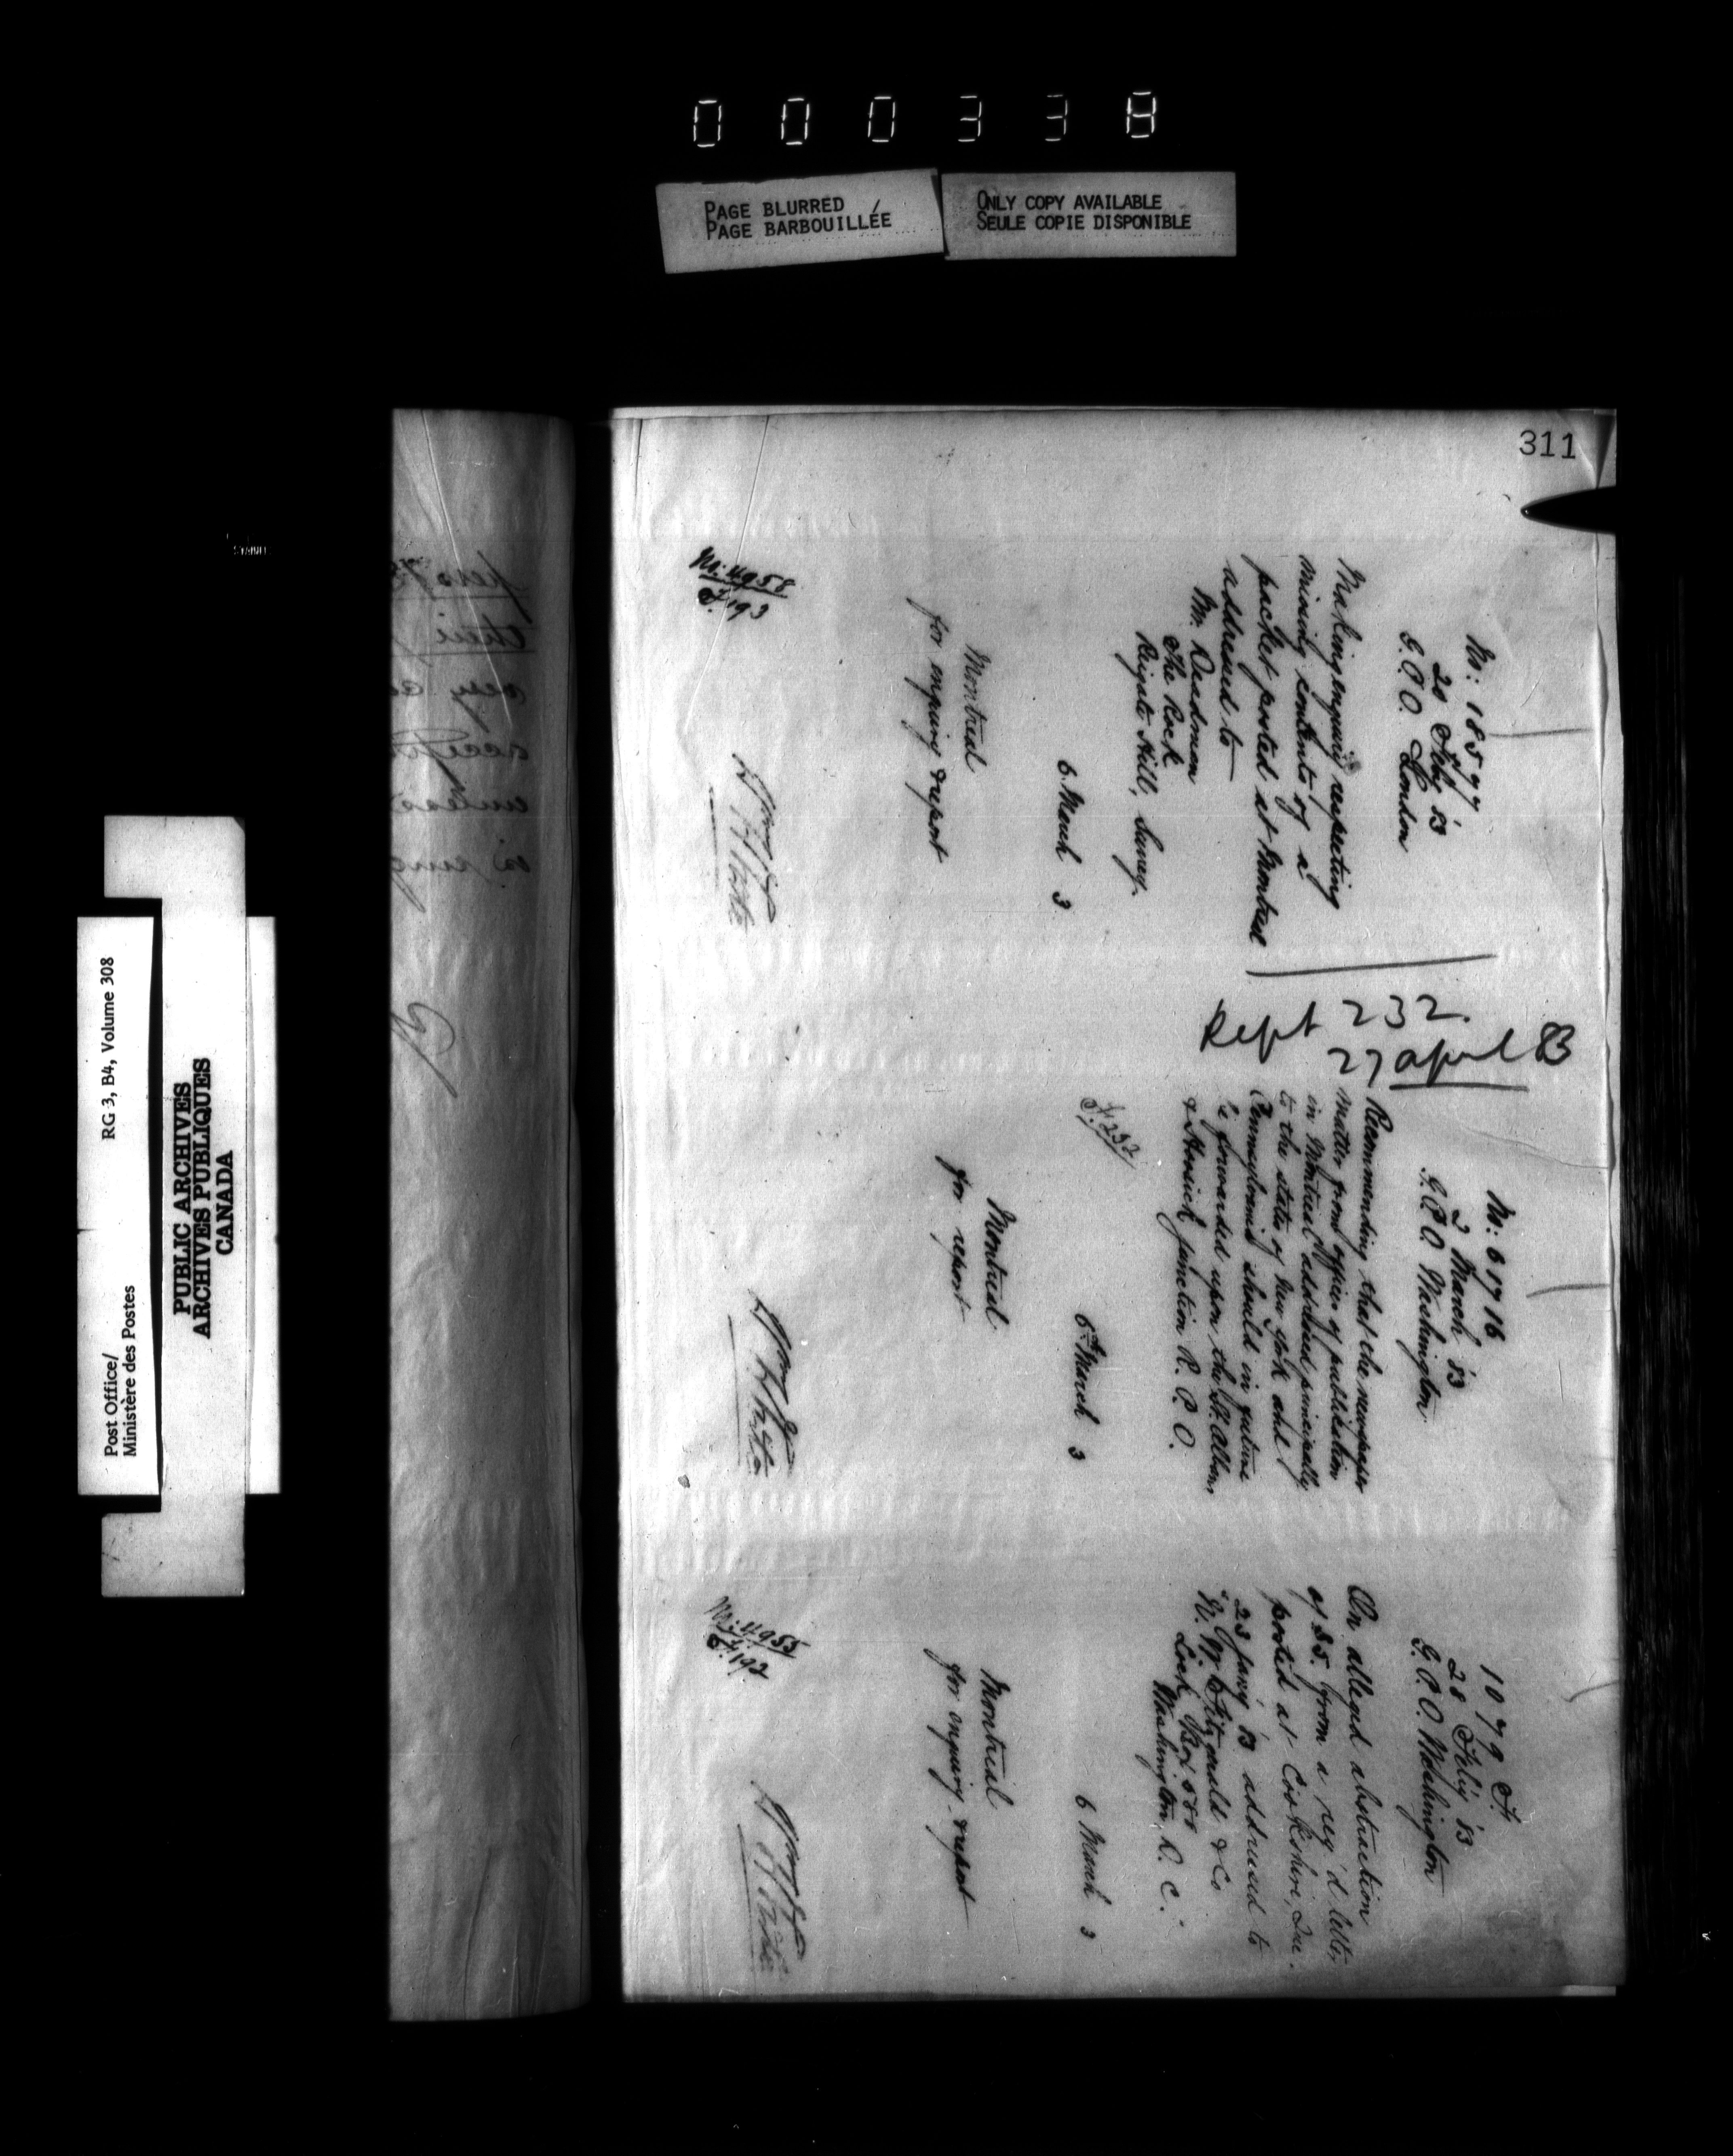 000338
PAGE BLURRED
PAGE BARBOUILLÉE
ONLY COPY AVAILABLE
SEULE COPIE DISPONIBLE
311
No: 18577
20 Feby '83
G.P.O. London
Making enquiry respecting
missing contents of a
packet posted at Montreal
addressed to
Mr. Deadman
The Rock
Reigate Hill, Surrey.
6 March 3
Montreal
for enquiry & report
No: 4958
F.193
Rept 232.
27 April 83
No: 61716
2 March '83
G.P.O. Washington
Recommending that the newspaper
matter from offices of publication
in Montreal addressed principally
to the states of New York and
Pennsylvania should in future
be forwarded upon the St. Albans
& Junction R.P.O.
F.232
6th March 3
Montreal
for report
1079 F.
28 Feby '83
G.P.O. Washington
On alleged abstraction
of $5. from a reg'd letter
posted at Cookshire, Que.
23 Jany '83 addressed to
W. Fitzgerald & Co
Lock Box 588
Washington, D.C.
6 March 3
Montreal
for enquiry & report
No: 4955
F.192
RG 3, B4, Volume 308
Post Office/
Ministère des Postes
PUBLIC ARCHIVES
ARCHIVES PUBLIQUES
CANADA